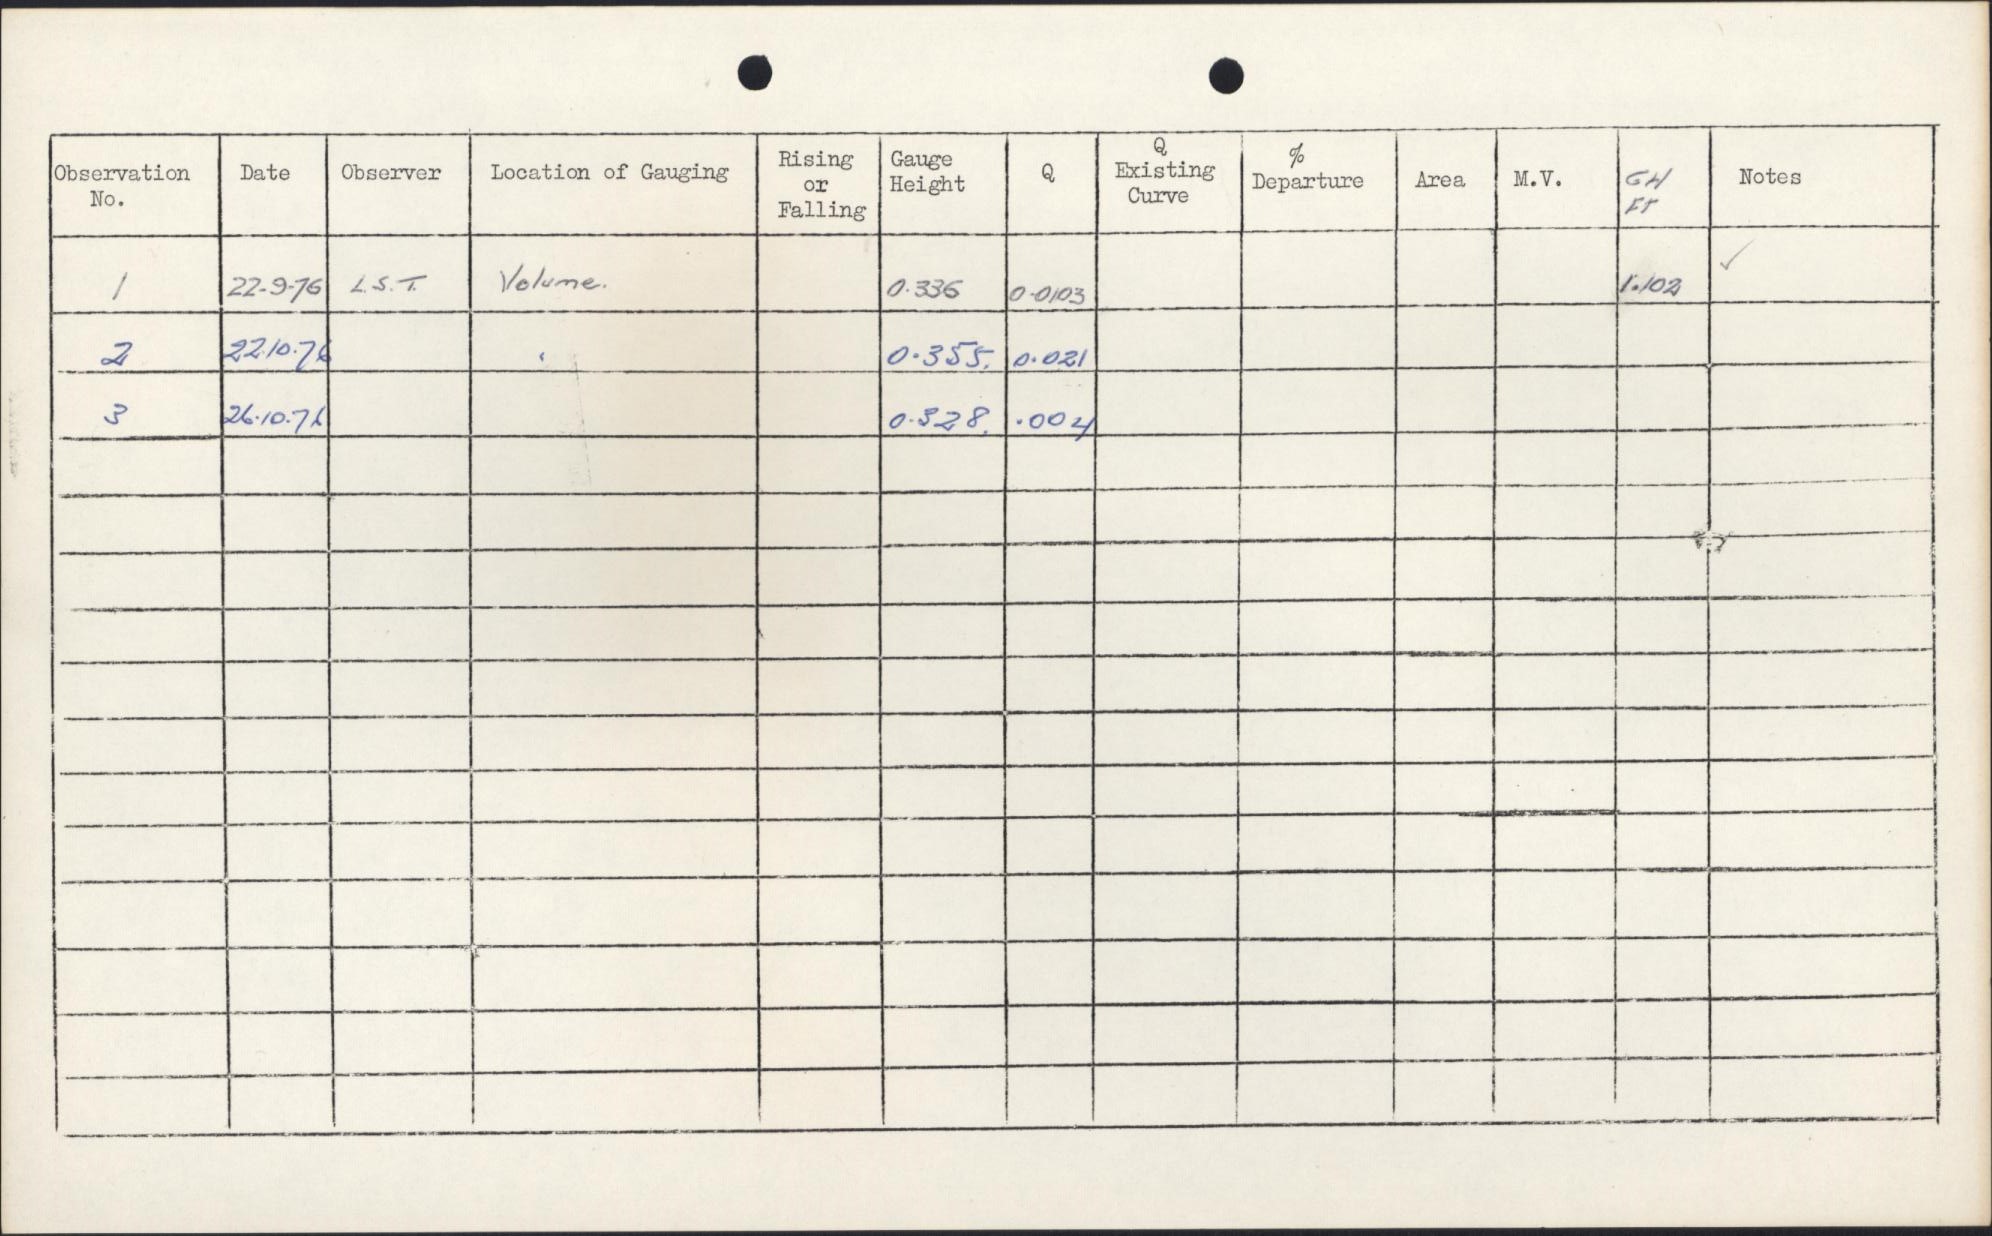 Observation No. Date Observer Location of Gauging Rising or Falling Gauge Height Q Q Existing Curve % Departure Area M.V. GH FT Notes
1 22-9-76 L.S.T. Volume. 0.336 0.0103 1.102 ✓
2 22.10.76 " 0.355. 0.021
3 26.10.76 0.328. .004